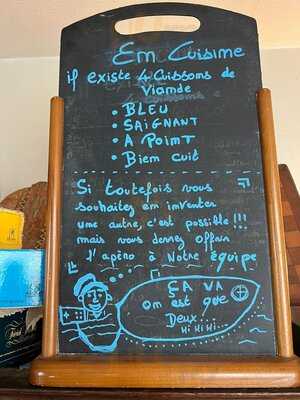 En Cuisine
il existe 4 Cuissons de
Viande
• BLEU
• SAIGNANT
• A POINT
• Bien cuit
Si toutefois vous
souhaitez en inventer
une autre, c'est possible!!!
mais vous devez offrir
l'apéro à Notre équipe
ÇA VA
on est que
Deux...
Hi Hi Hi...